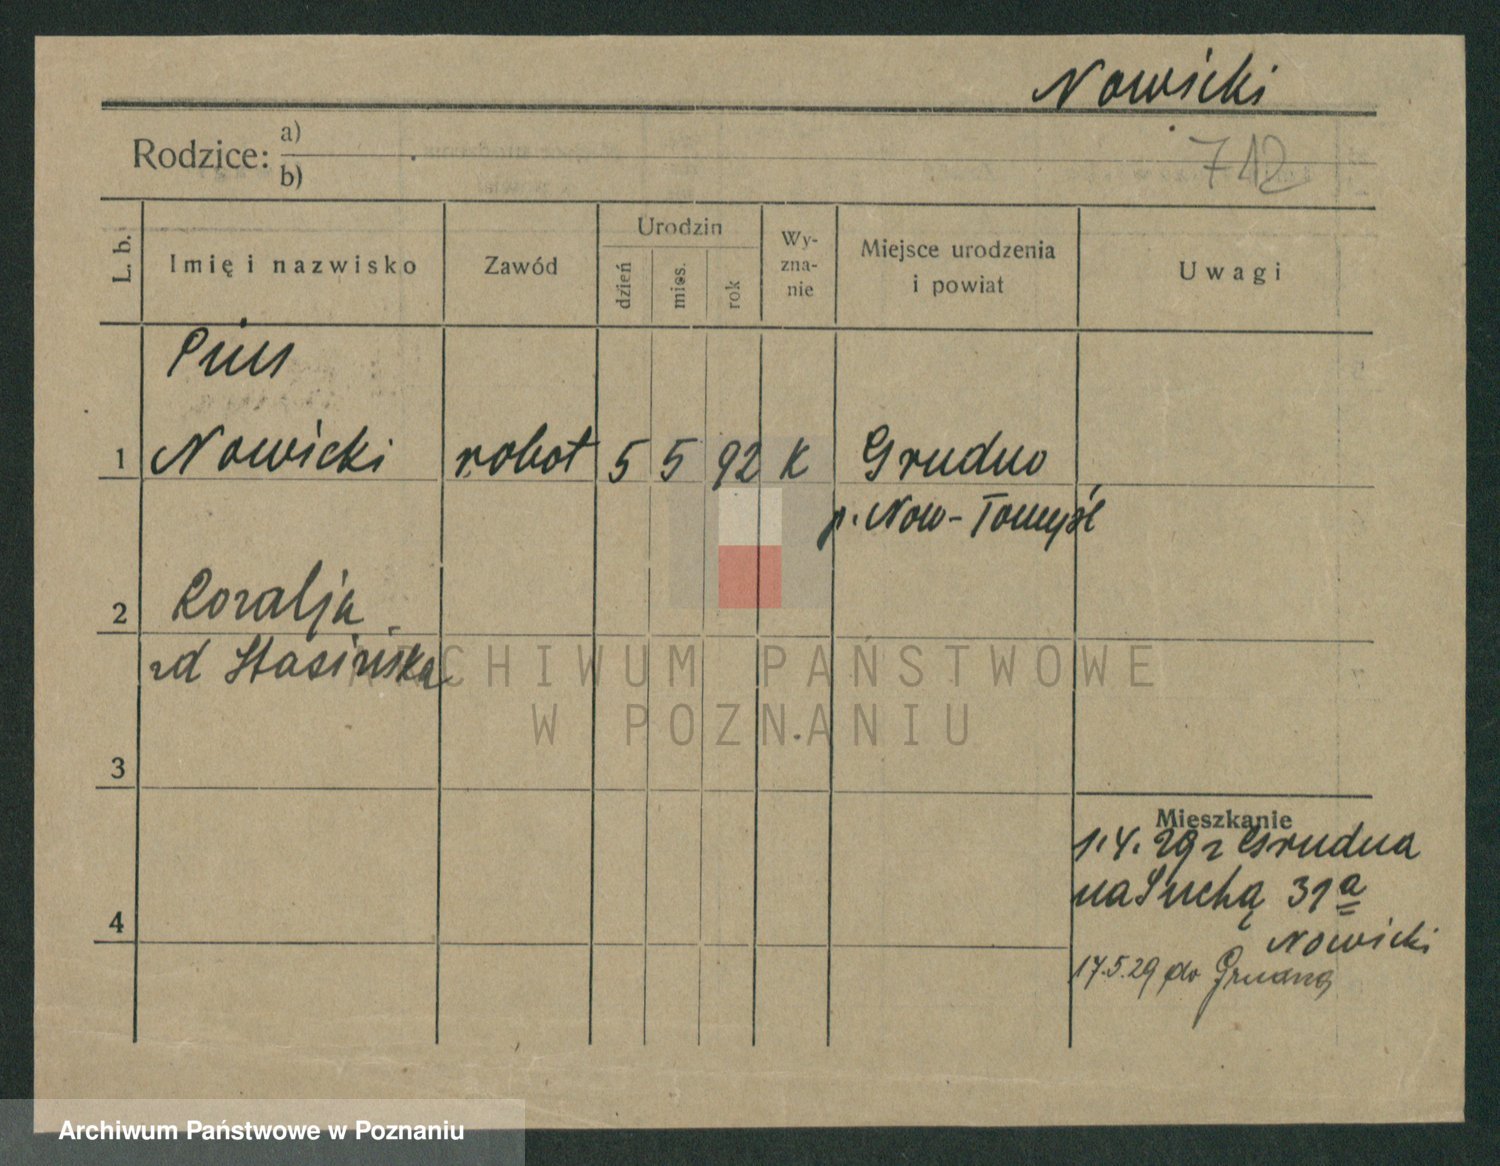 Nowicki
Rodzice: a)
b)
712
L. b.
Imię i nazwisko
Zawód
Urodzin
dzień
mies.
rok
Wy-
zna-
nie
Miejsce urodzenia
i powiat
Uwagi
Pius
1 Nowicki robot 5 5 92 K Grudno
p. Now-Tomyśl
2 Rozalja
zd Stasińska
ARCHIWUM PAŃSTWOWE
W POZNANIU
3
Mieszkanie
1.4.29 z Grudna
na Suchą 31a
4
Nowicki
17.5.29 do Grudna
Archiwum Państwowe w Poznaniu